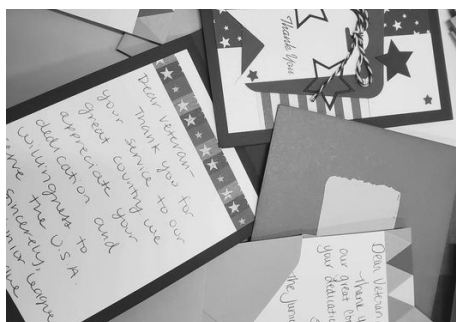 Dear Veteran-
Thank you for
your service to our
great country we
appreciate your
dedication and
willingness to
serve the U.S.A.
Sincerely,
Junior League
Thank You
Dear Veteran
Thank y
our great co
your dedicati
The Juni